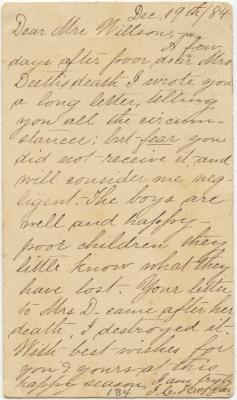 Dec. 19th/84
Dear Mrs Willson,
A few
days after poor, dear Mrs
Deetti's death I wrote you
a long letter, telling
you all the circum-
stances; but fear you
did not receive it, and
will consider me neg-
ligent. The boys are
well and happy—
poor children they
little know what they
have lost. Your letter
to Mrs D— came after her
death, I destroyed it.
With best wishes for
you & yours, at this
happy season, I am truly
184